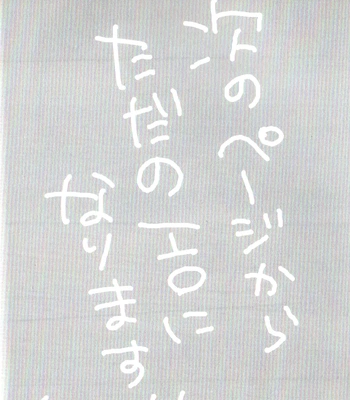 次のページから
ただのエロに
なります